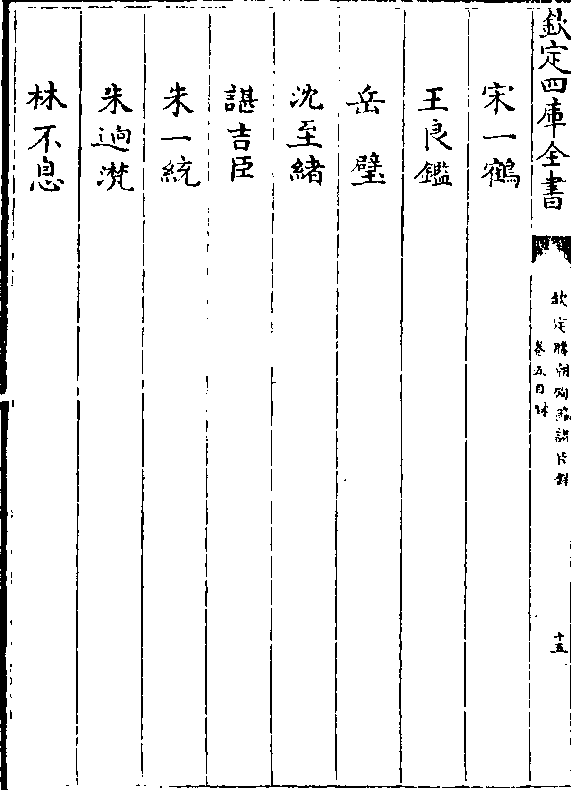 欽定四庫全書
欽定勝朝殉節諸臣錄
卷五目錄
十五
宋一鶴
王良鑑
岳璧
沈至緒
諶吉臣
朱一統
朱逈滼
林不息